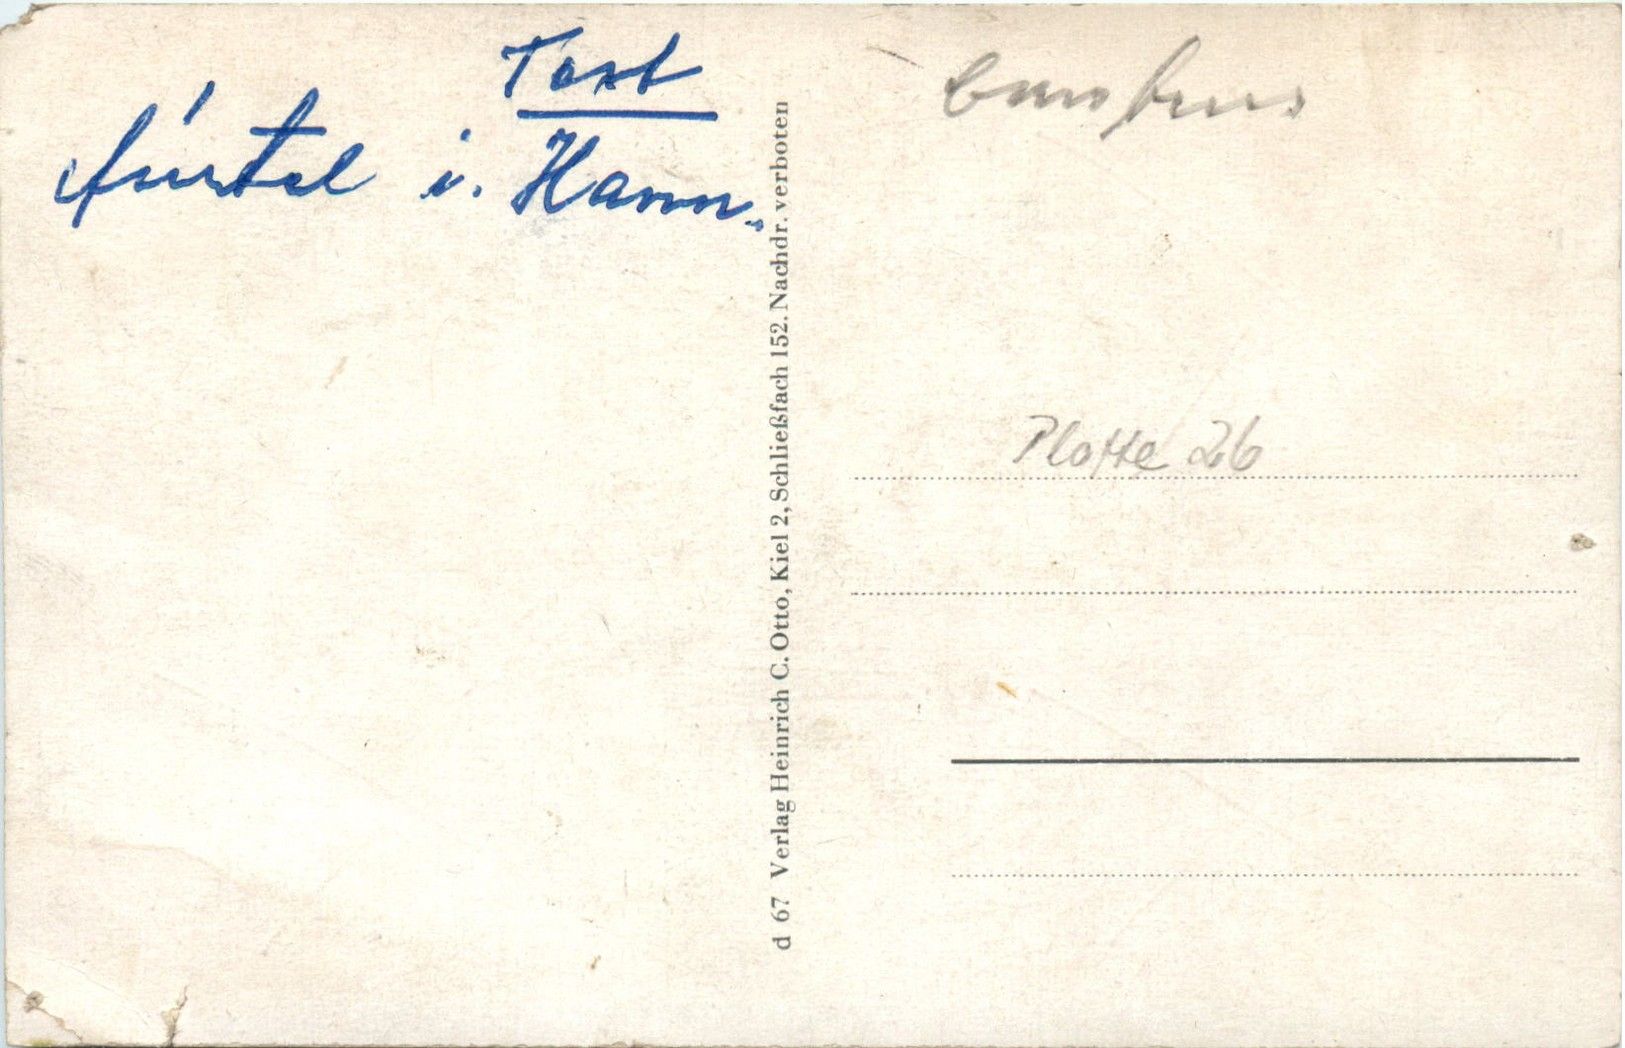 Text
i. Hann.
d 67 Verlag Heinrich C. Otto, Kiel 2, Schließfach 152. Nachdr. verboten
Platte 26